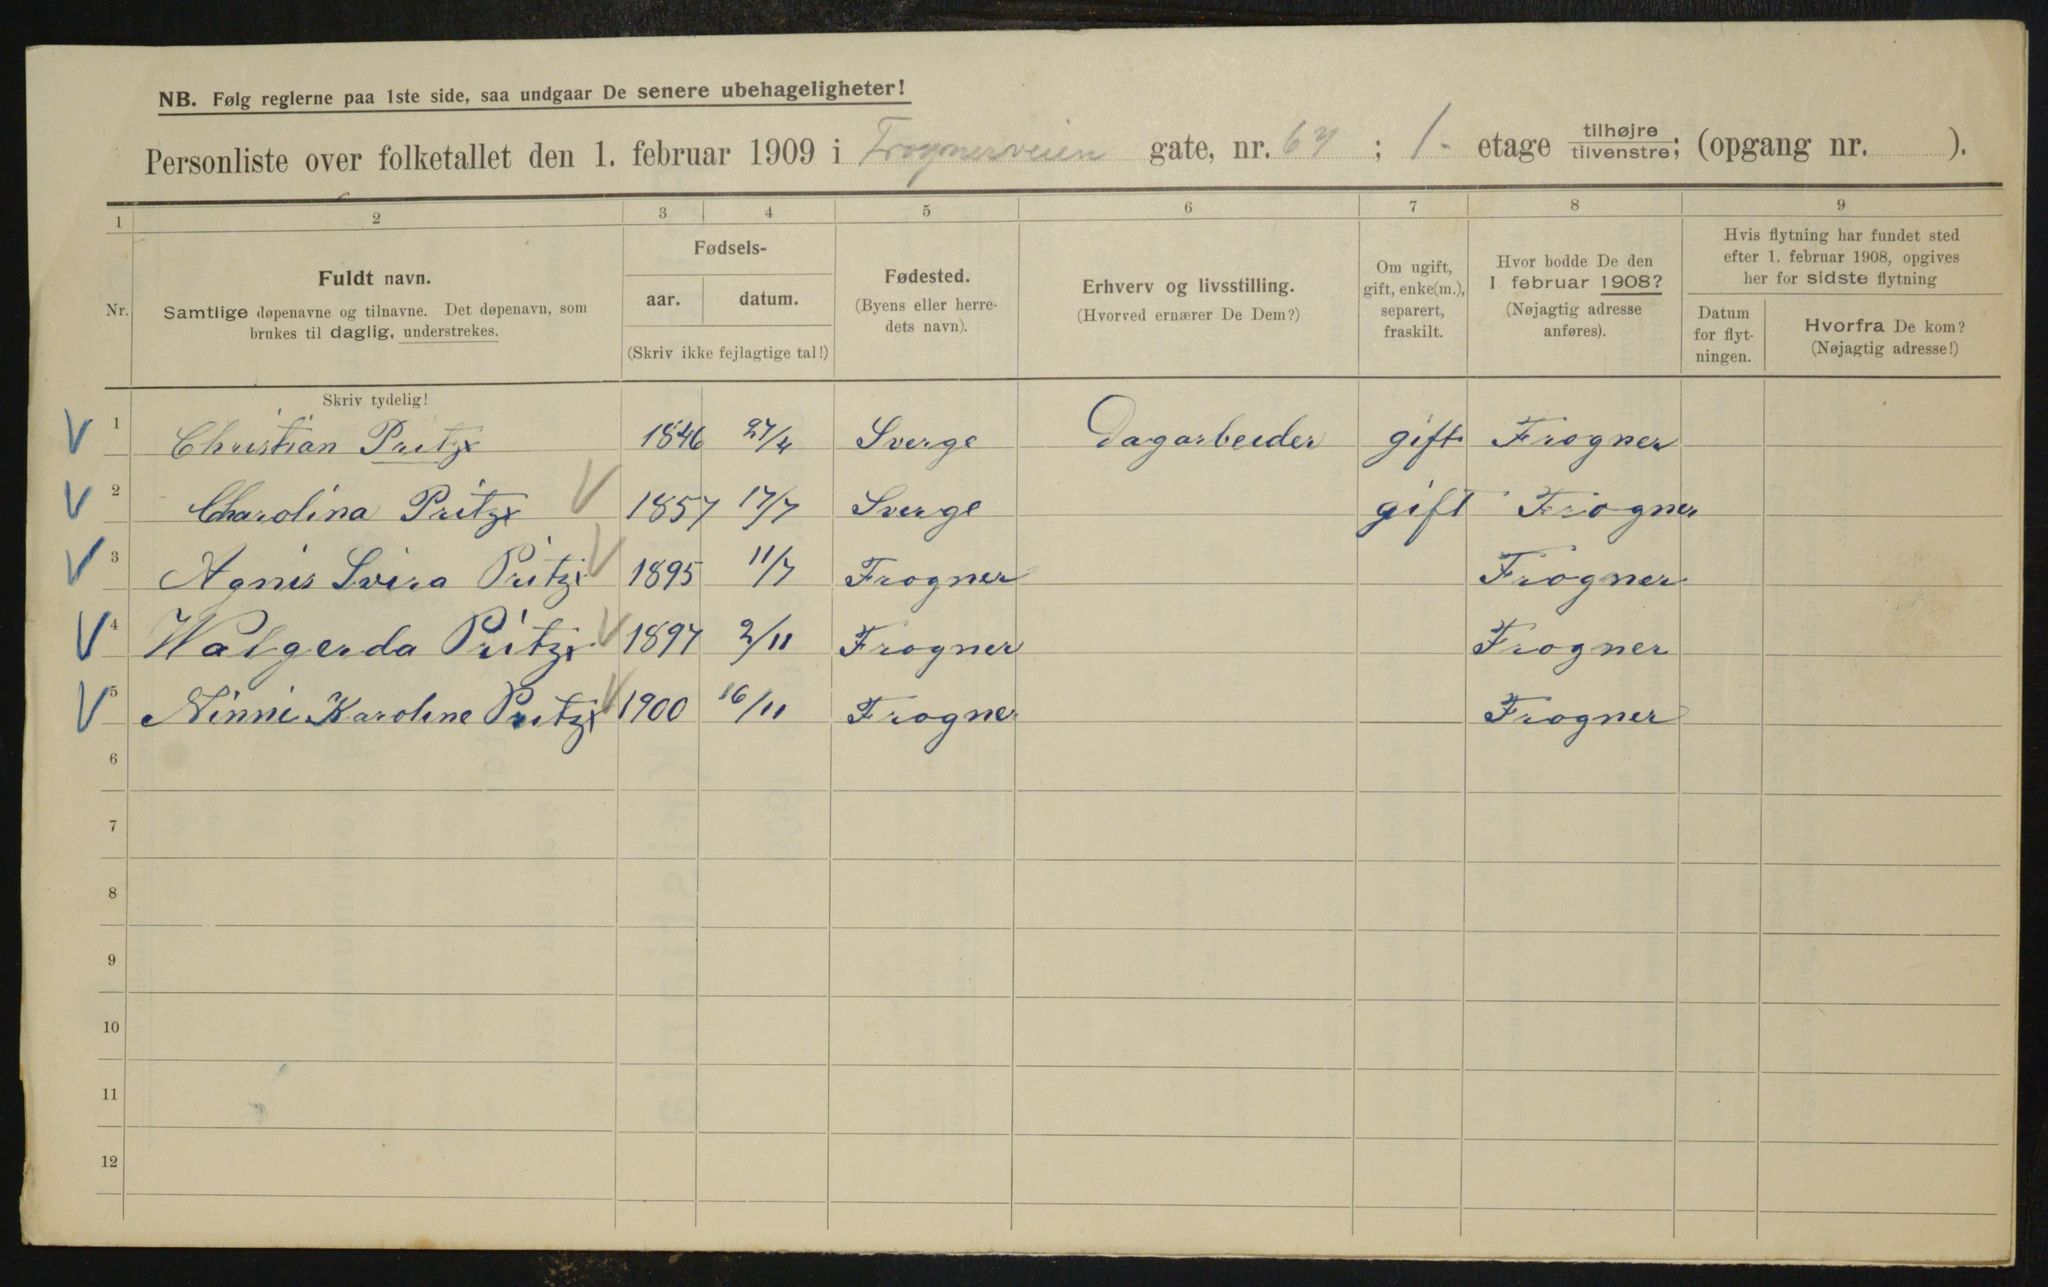 NB. Følg reglerne paa 1ste side, saa undgaar De senere ubehageligheter!
Personliste over folketallet den 1. februar 1909 i Frognerveien gate, nr. 67; 1. etage tilhøjre/tilvenstre; (opgang nr. ).
1 2 3 4 5 6 7 8 9
Nr.
Fuldt navn.
Samtlige døpenavne og tilnavne. Det døpenavn, som
brukes til daglig, understrekes.
Fødsels-
aar. datum.
(Skriv ikke fejlagtige tal!)
Fødested.
(Byens eller herre-
dets navn).
Erhverv og livsstilling.
(Hvorved ernærer De Dem?)
Om ugift,
gift, enke(m.),
separert,
fraskilt.
Hvor bodde De den
1 februar 1908?
(Nøjagtig adresse
anføres).
Hvis flytning har fundet sted
efter 1. februar 1908, opgives
her for sidste flytning
Datum
for flyt-
ningen.
Hvorfra De kom?
(Nøjagtig adresse!)
Skriv tydelig!
1 Christian Pritz 1846 27/4 Sverge Dagarbeider gift Frogner
2 Charolina Pritz 1857 17/7 Sverge gift Frogner
3 Agnis Svira Pritz 1895 11/7 Frogner Frogner
4 Walgerda Pritz 1897 2/11 Frogner Frogner
5 Ninni Karoline Pritz 1900 16/11 Frogner Frogner
6
7
8
9
10
11
12